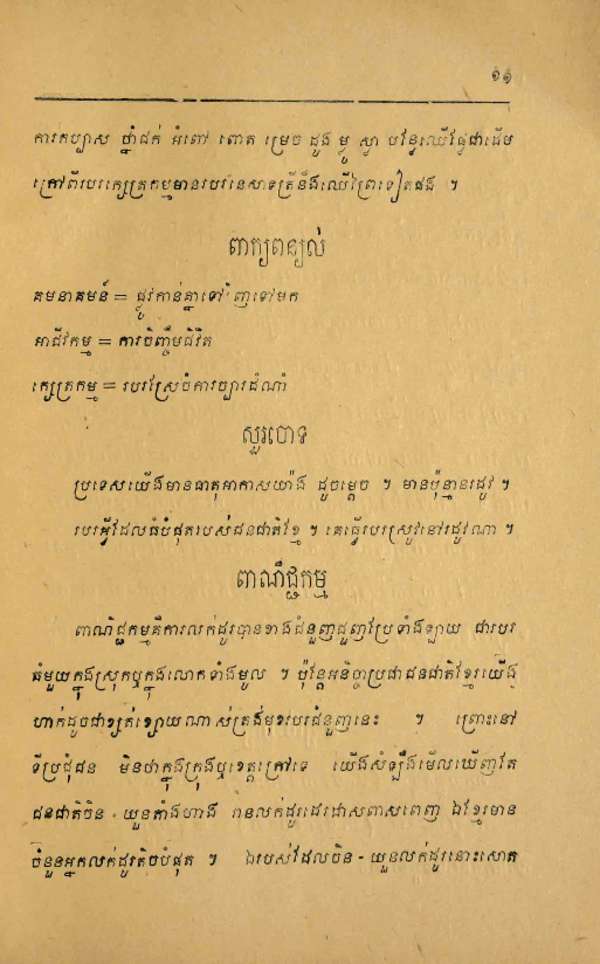 ១១
ការកប្បាស ថ្នាំជក់ អំពៅ ពោត ម្រេច ដូង ម្លូ ស្លា បន្លែឈើផ្លែជាដើម
ក្រៅពីរបរក្សេត្រកម្មមានរបរនេសាទត្រីនឹងឈើព្រៃទៀតផង ។
ពាក្យពន្យល់
គមនាគមន៍ = ផ្លូវកាន់គ្នាទៅវិញទៅមក
អាជីវកម្ម = ការចិញ្ចឹមជិវិត
ក្សេត្រកម្ម = របរស្រែចំការច្បារដំណាំ
សួរបោទ
ប្រទេសយើងមានធាតុអាកាសយ៉ាង ដូចម្ដេច ។ មានប៉ុន្មានរដូវ ។
របរអ្វីដែលធំបំផុតរបស់ជនជាតិខ្មែ ។ គេធ្វើរបរស្រូវនៅរដូវណា ។
ពាណិជ្ជកម្ម
ពាណិជ្ជកម្មគឺការលក់ដូរបានខាងជំនួញជួញប្រែទាំងឡាយ ជារបរ
ធំមួយក្នុងស្រុកឬក្នុងលោកទាំងមូល ។ ប៉ុន្តែអនិច្ចាប្រជាជនជាតិខ្មែរយើង
ហាក់ដូចជាខ្សត់ខ្សោយណាស់ត្រង់មុខរបរជំនួញនេះ ។ ព្រោះនៅ
ទីប្រជុំជន មិនថាក្នុងក្រុងឬខេត្តក្រៅទេ យើងសំឡឹងមើលឃើញតែ
ជនជាតិចិន - យួនតាំងហាង រានលក់ដូរដេរដាសពាសពេញ ឯខ្មែរមាន
ចំនួនអ្នកលក់ដូរតិចបំផុត ។ ឯរបស់ដែលចិន - យួនលក់ដូរនោះសោត